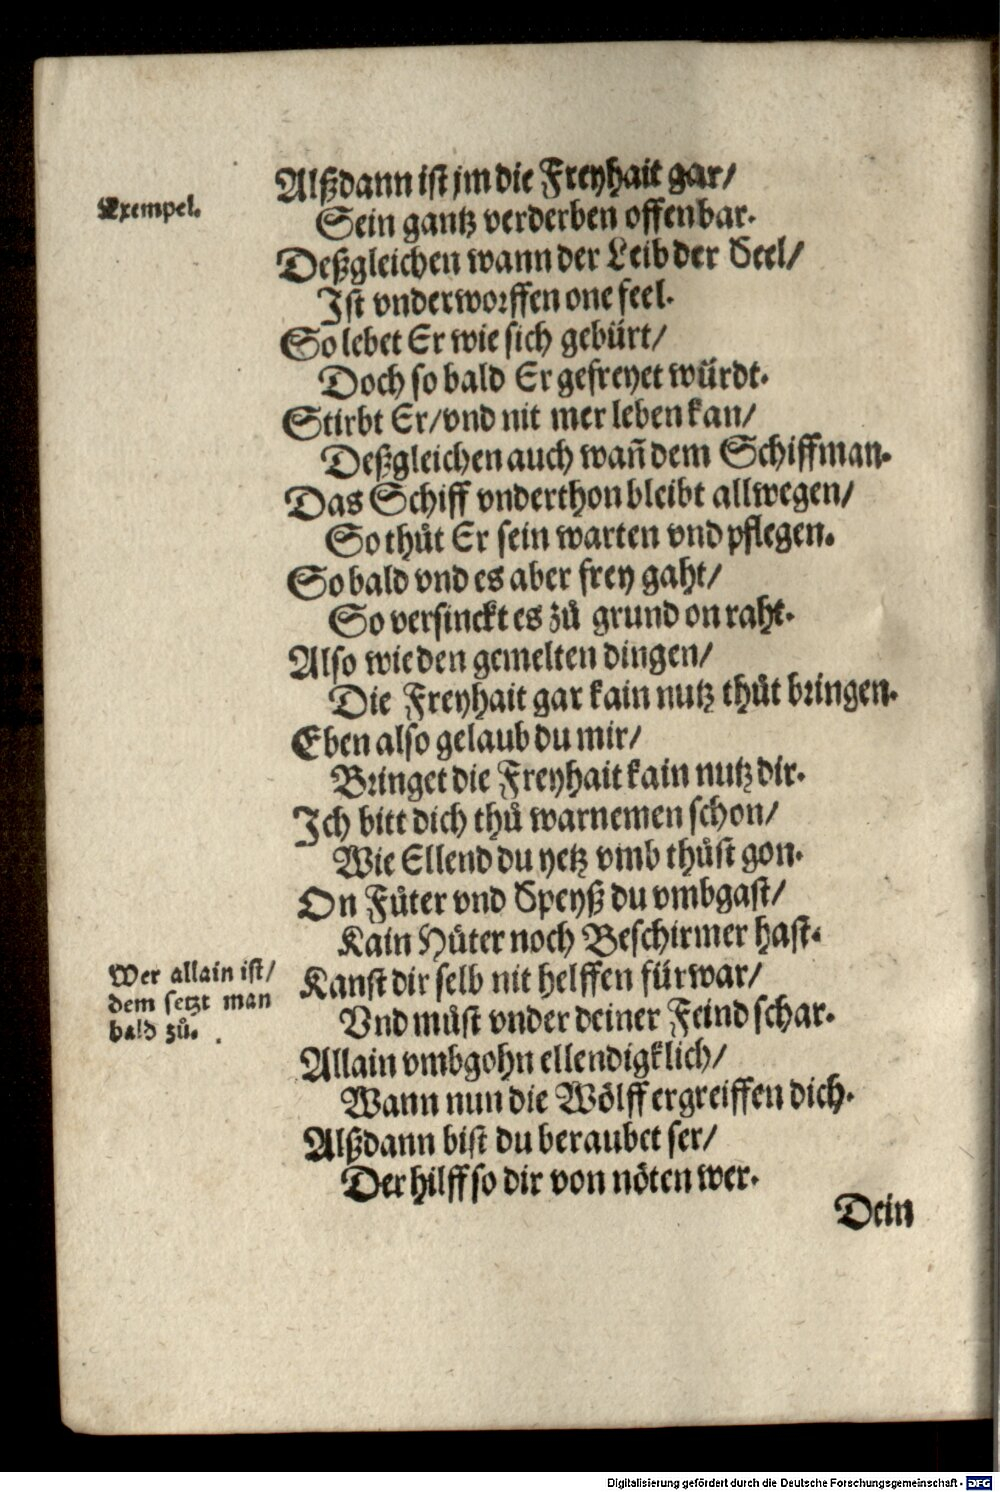 Alßdann ist jm die Freyhait gar/
Exempel.
Sein gantz verderben offenbar.
Deßgleichen wann der Leib der Seel/
Ist vnderworffen one feel.
So lebet Er wie sich gebürt/
Doch so bald Er gefreyet würdt.
Stirbt Er/vnd nit mer leben kan/
Deßgleichen auch wañ dem Schiffman.
Das Schiff vnderthon bleibt allwegen/
So thůt Er sein warten vnd pflegen.
So bald vnd es aber frey gaht/
So versinckt es zů grund on raht.
Also wie den gemelten dingen/
Die Freyhait gar kain nutz thůt bringen.
Eben also gelaub du mir/
Bringet die Freyhait kain nutz dir.
Ich bitt dich thů warnemen schon/
Wie Ellend du yetz vmb thůst gon.
On Fůter vnd Speyß du vmbgast/
Kain Hüter noch Beschirmer hast.
Wer allain ist/
dem setzt man
bald zů.
Kanst dir selb nit helffen fürwar/
Vnd můst vnder deiner Feind schar.
Allain vmbgohn ellendigklich/
Wann nun die Wölff ergreiffen dich.
Alßdann bist du beraubet ser/
Der hilff so dir von nöten wer.
Dein
Digitalisierung gefördert durch die Deutsche Forschungsgemeinschaft - DFG